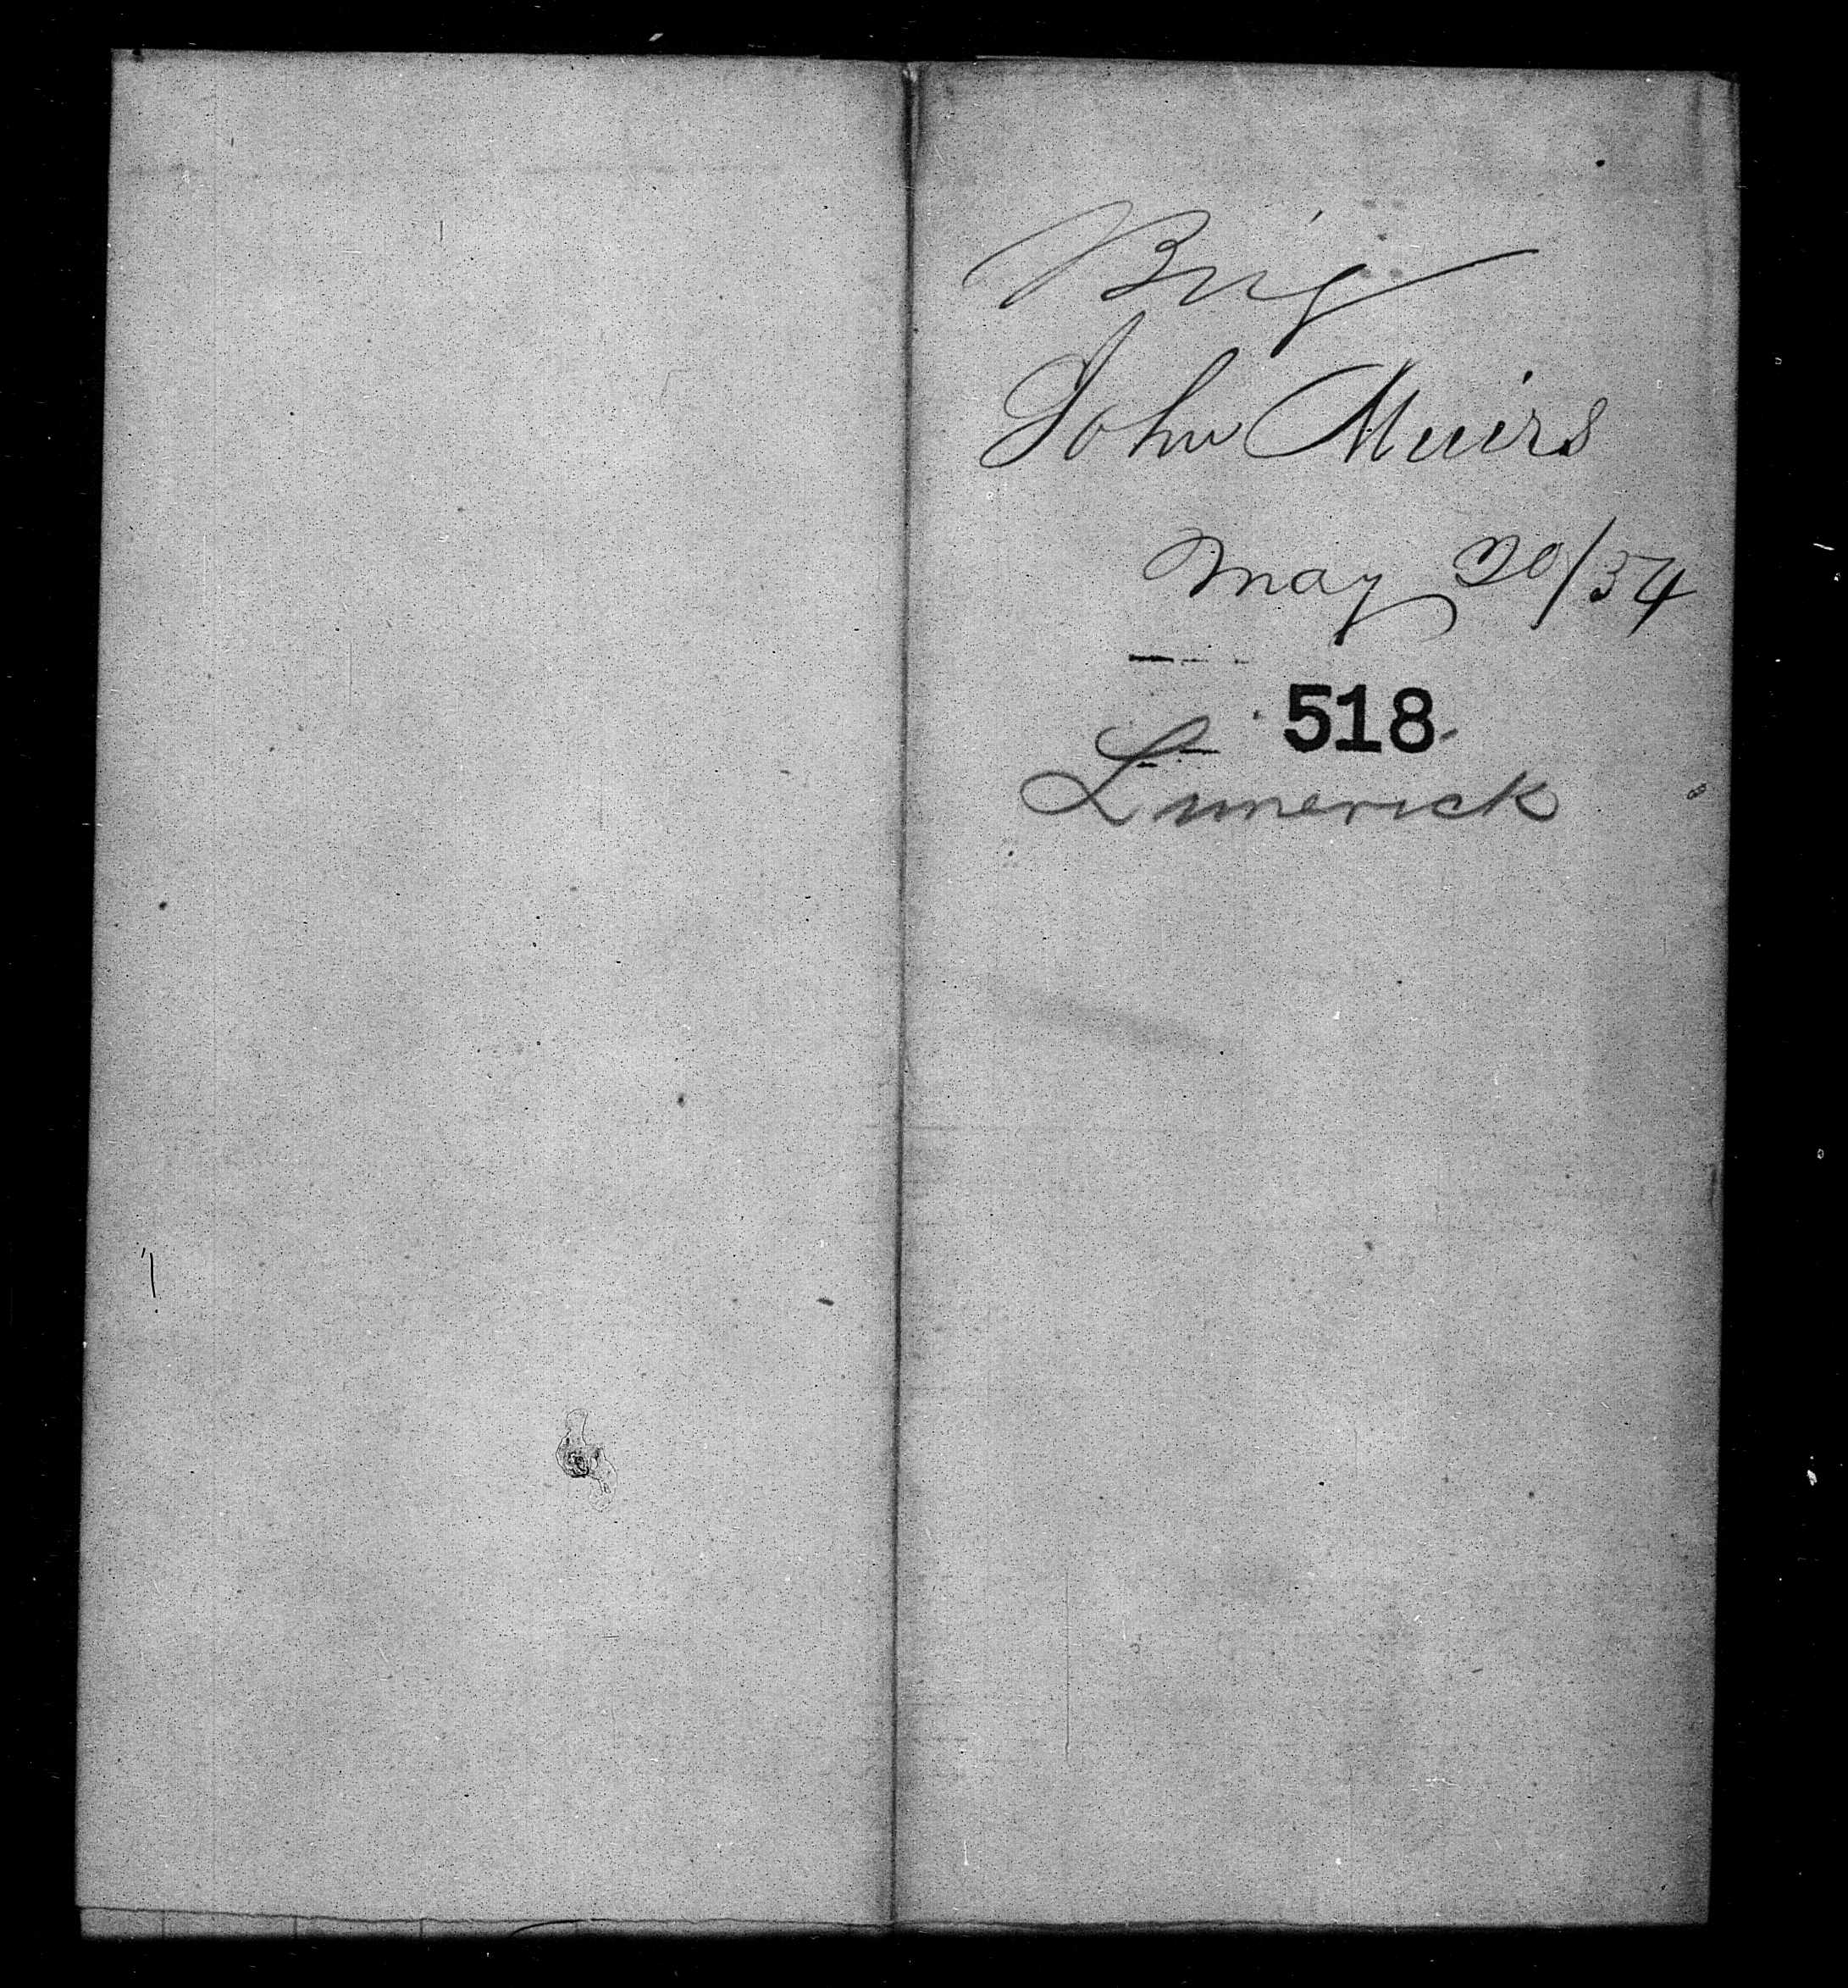 Brig
John Muirs
May 20/34
518
Limerick